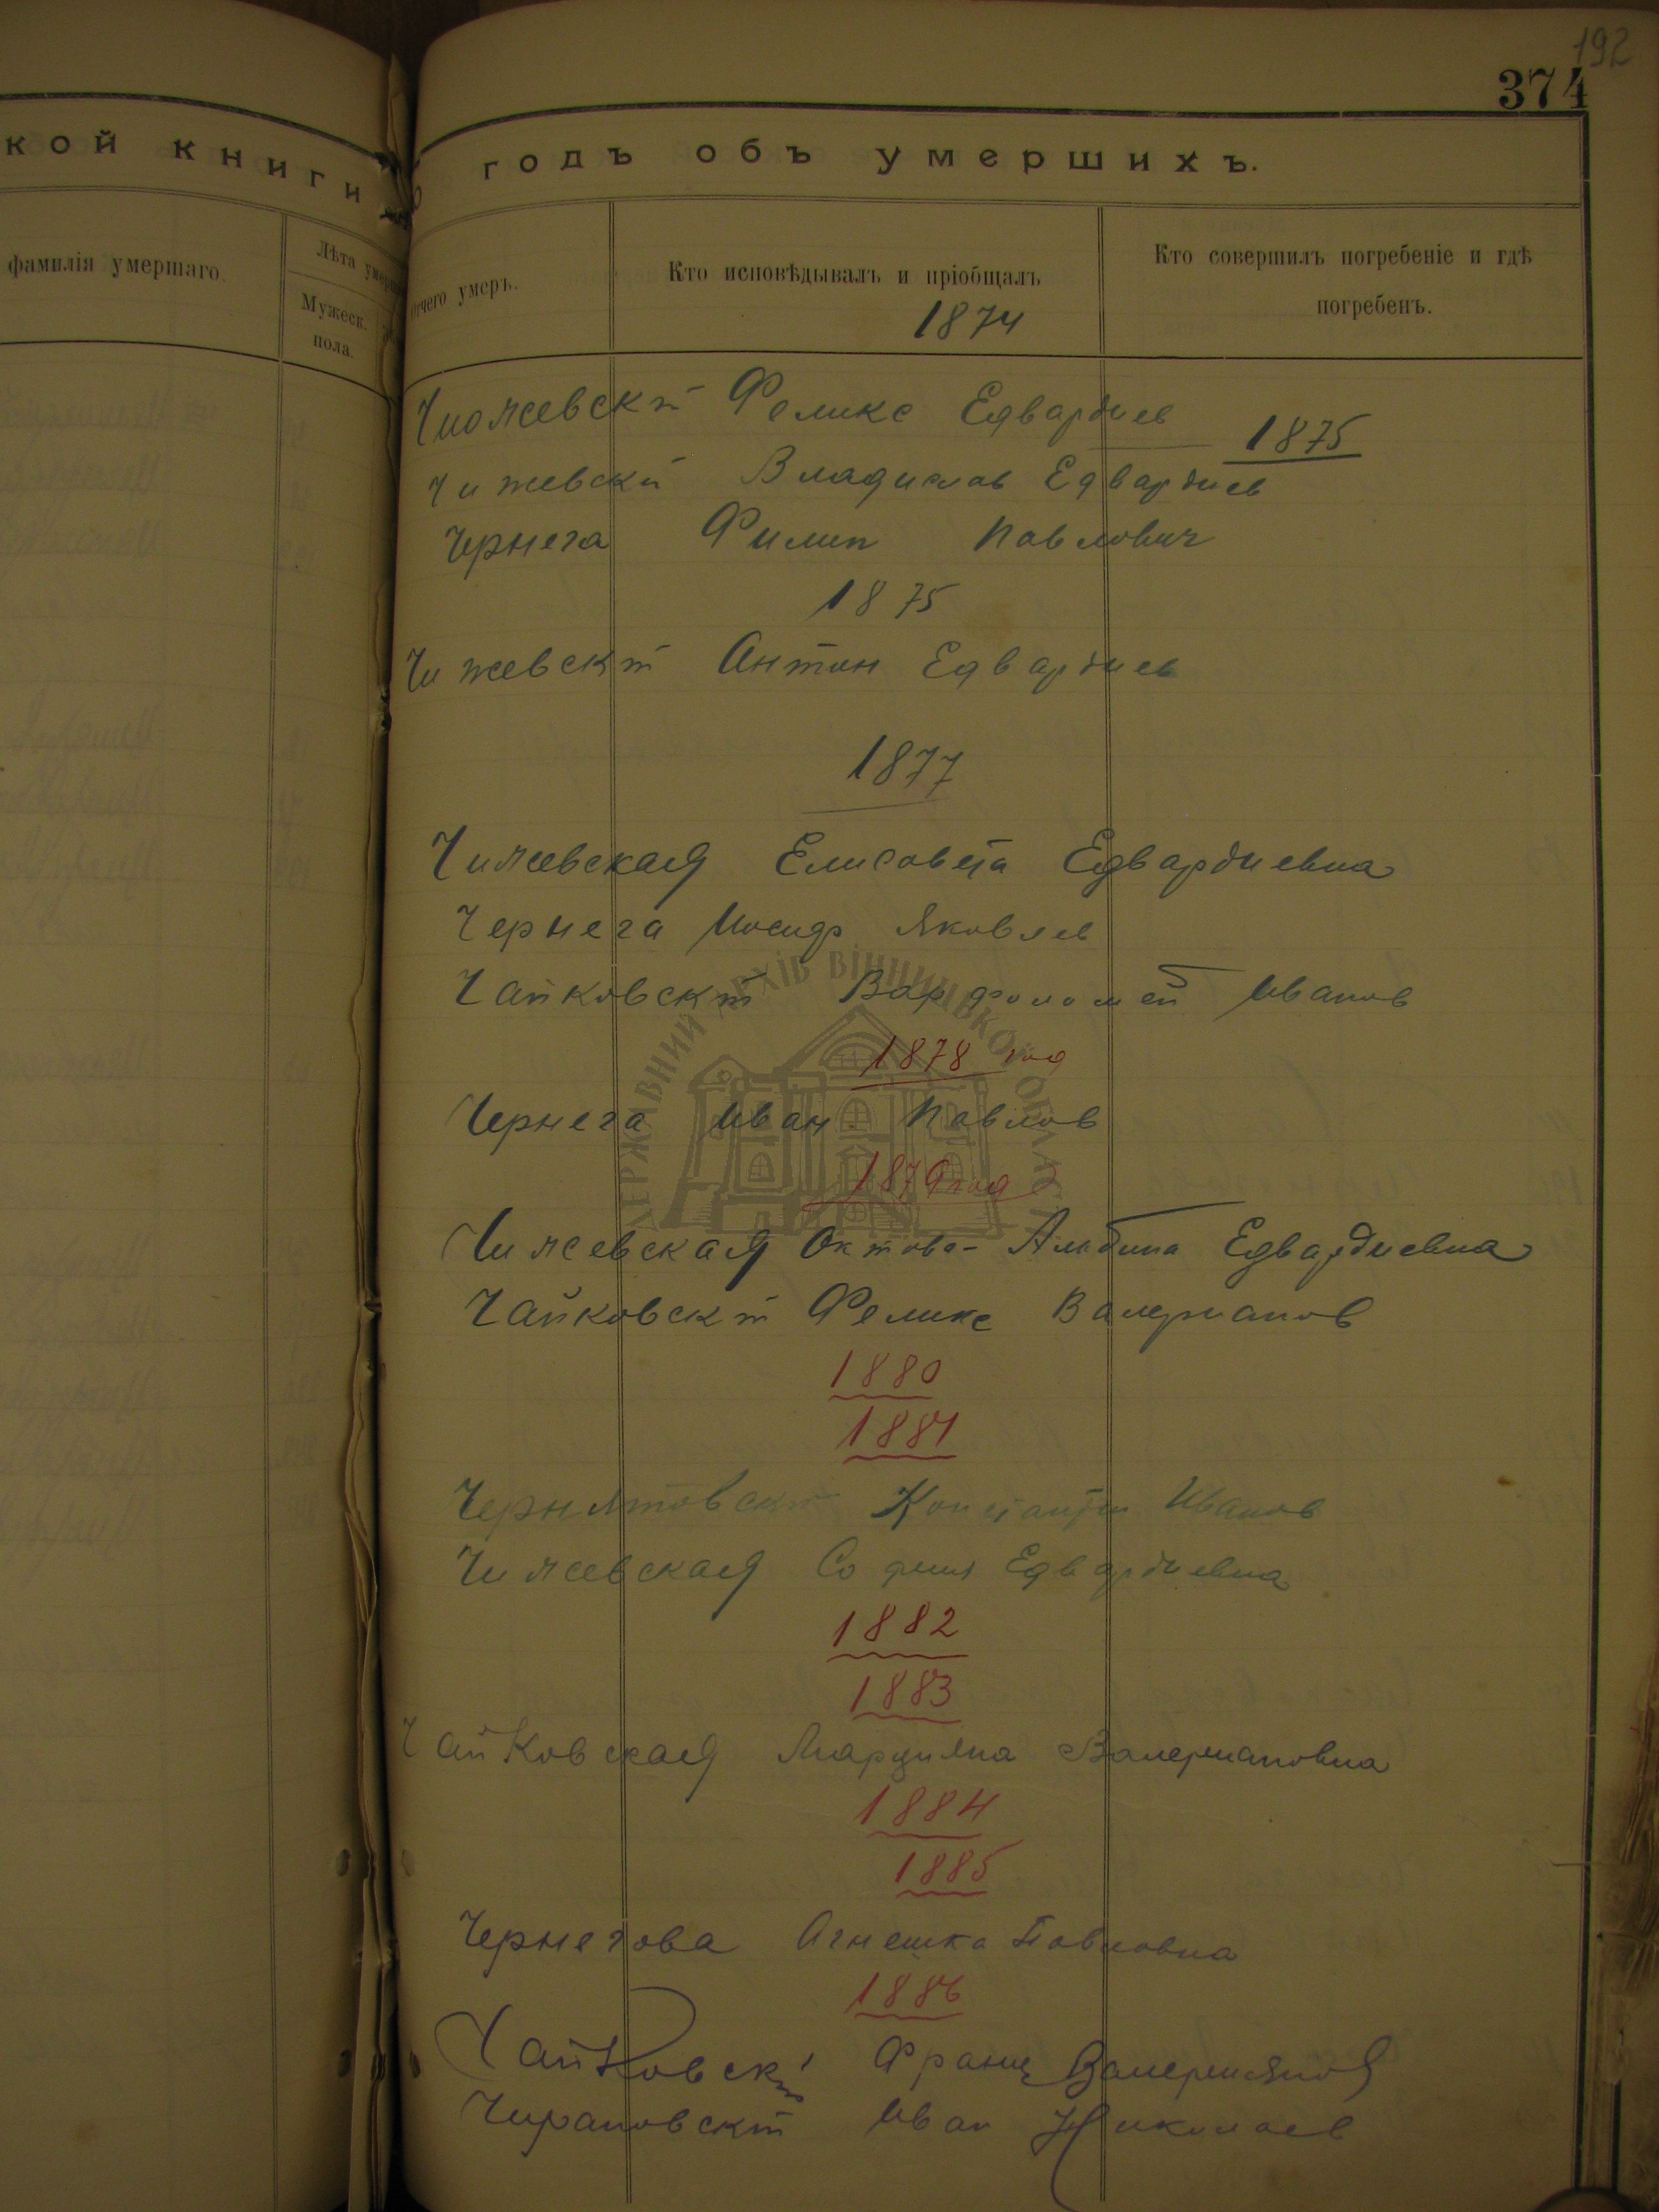 192
374
кой книги
годъ объ умершихъ.
фамилія умершаго.
Лѣта
Мужеск. пола.
отчего умеръ.
Кто исповѣдывалъ и пріобщалъ
Кто совершилъ погребеніе и гдѣ погребенъ.
1874
Чижевскій Феликс Едвардиев
1875
Чижевскій Владислав Едвардиев
Чернега Филип Павлович
1875
Чижевскій Антон Едвардиев
1877
Чижевская Елисовета Едвардиевна
Чернега Иосиф Яковлев
Чайковскій Варфоломей Иванов
1878 год
Чернега Иван Павлов
1879 год
Чижевская Октова-Альбина Едвардиевна
Чайковскій Феликс Валерианов
1880
1881
Чернятовскій Константин Иванов
Чижевская София Едвардиевна
1882
1883
Чайковская Марцияна Валериановна
1884
1885
Чернегова Агнешка Павловна
1886
Чайковскій Франц Валериянов
Чирановскій Иван Николаев
ДЕРЖАВНИЙ АРХІВ ВІННИЦЬКОЇ ОБЛАСТІ